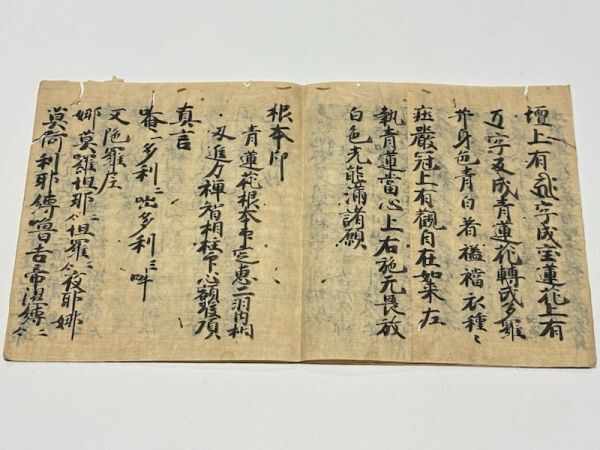 壇上有字成宝蓮花上有
字反成青蓮花轉成多羅
身色青白着襠衣種〻
莊嚴冠上有觀自在如来左
執青蓮當心上右施无畏放
白色光能滿諸願
根本印
青蓮花根本印定惠二羽内相
叉進力禅智相柱印心額喉頂
真言
唵一多利二咄多利三吽
又陁羅尼
娜莫羅怛那二合怛羅二合夜耶娜
莫阿利耶縛嚕吉帝湿縛二合